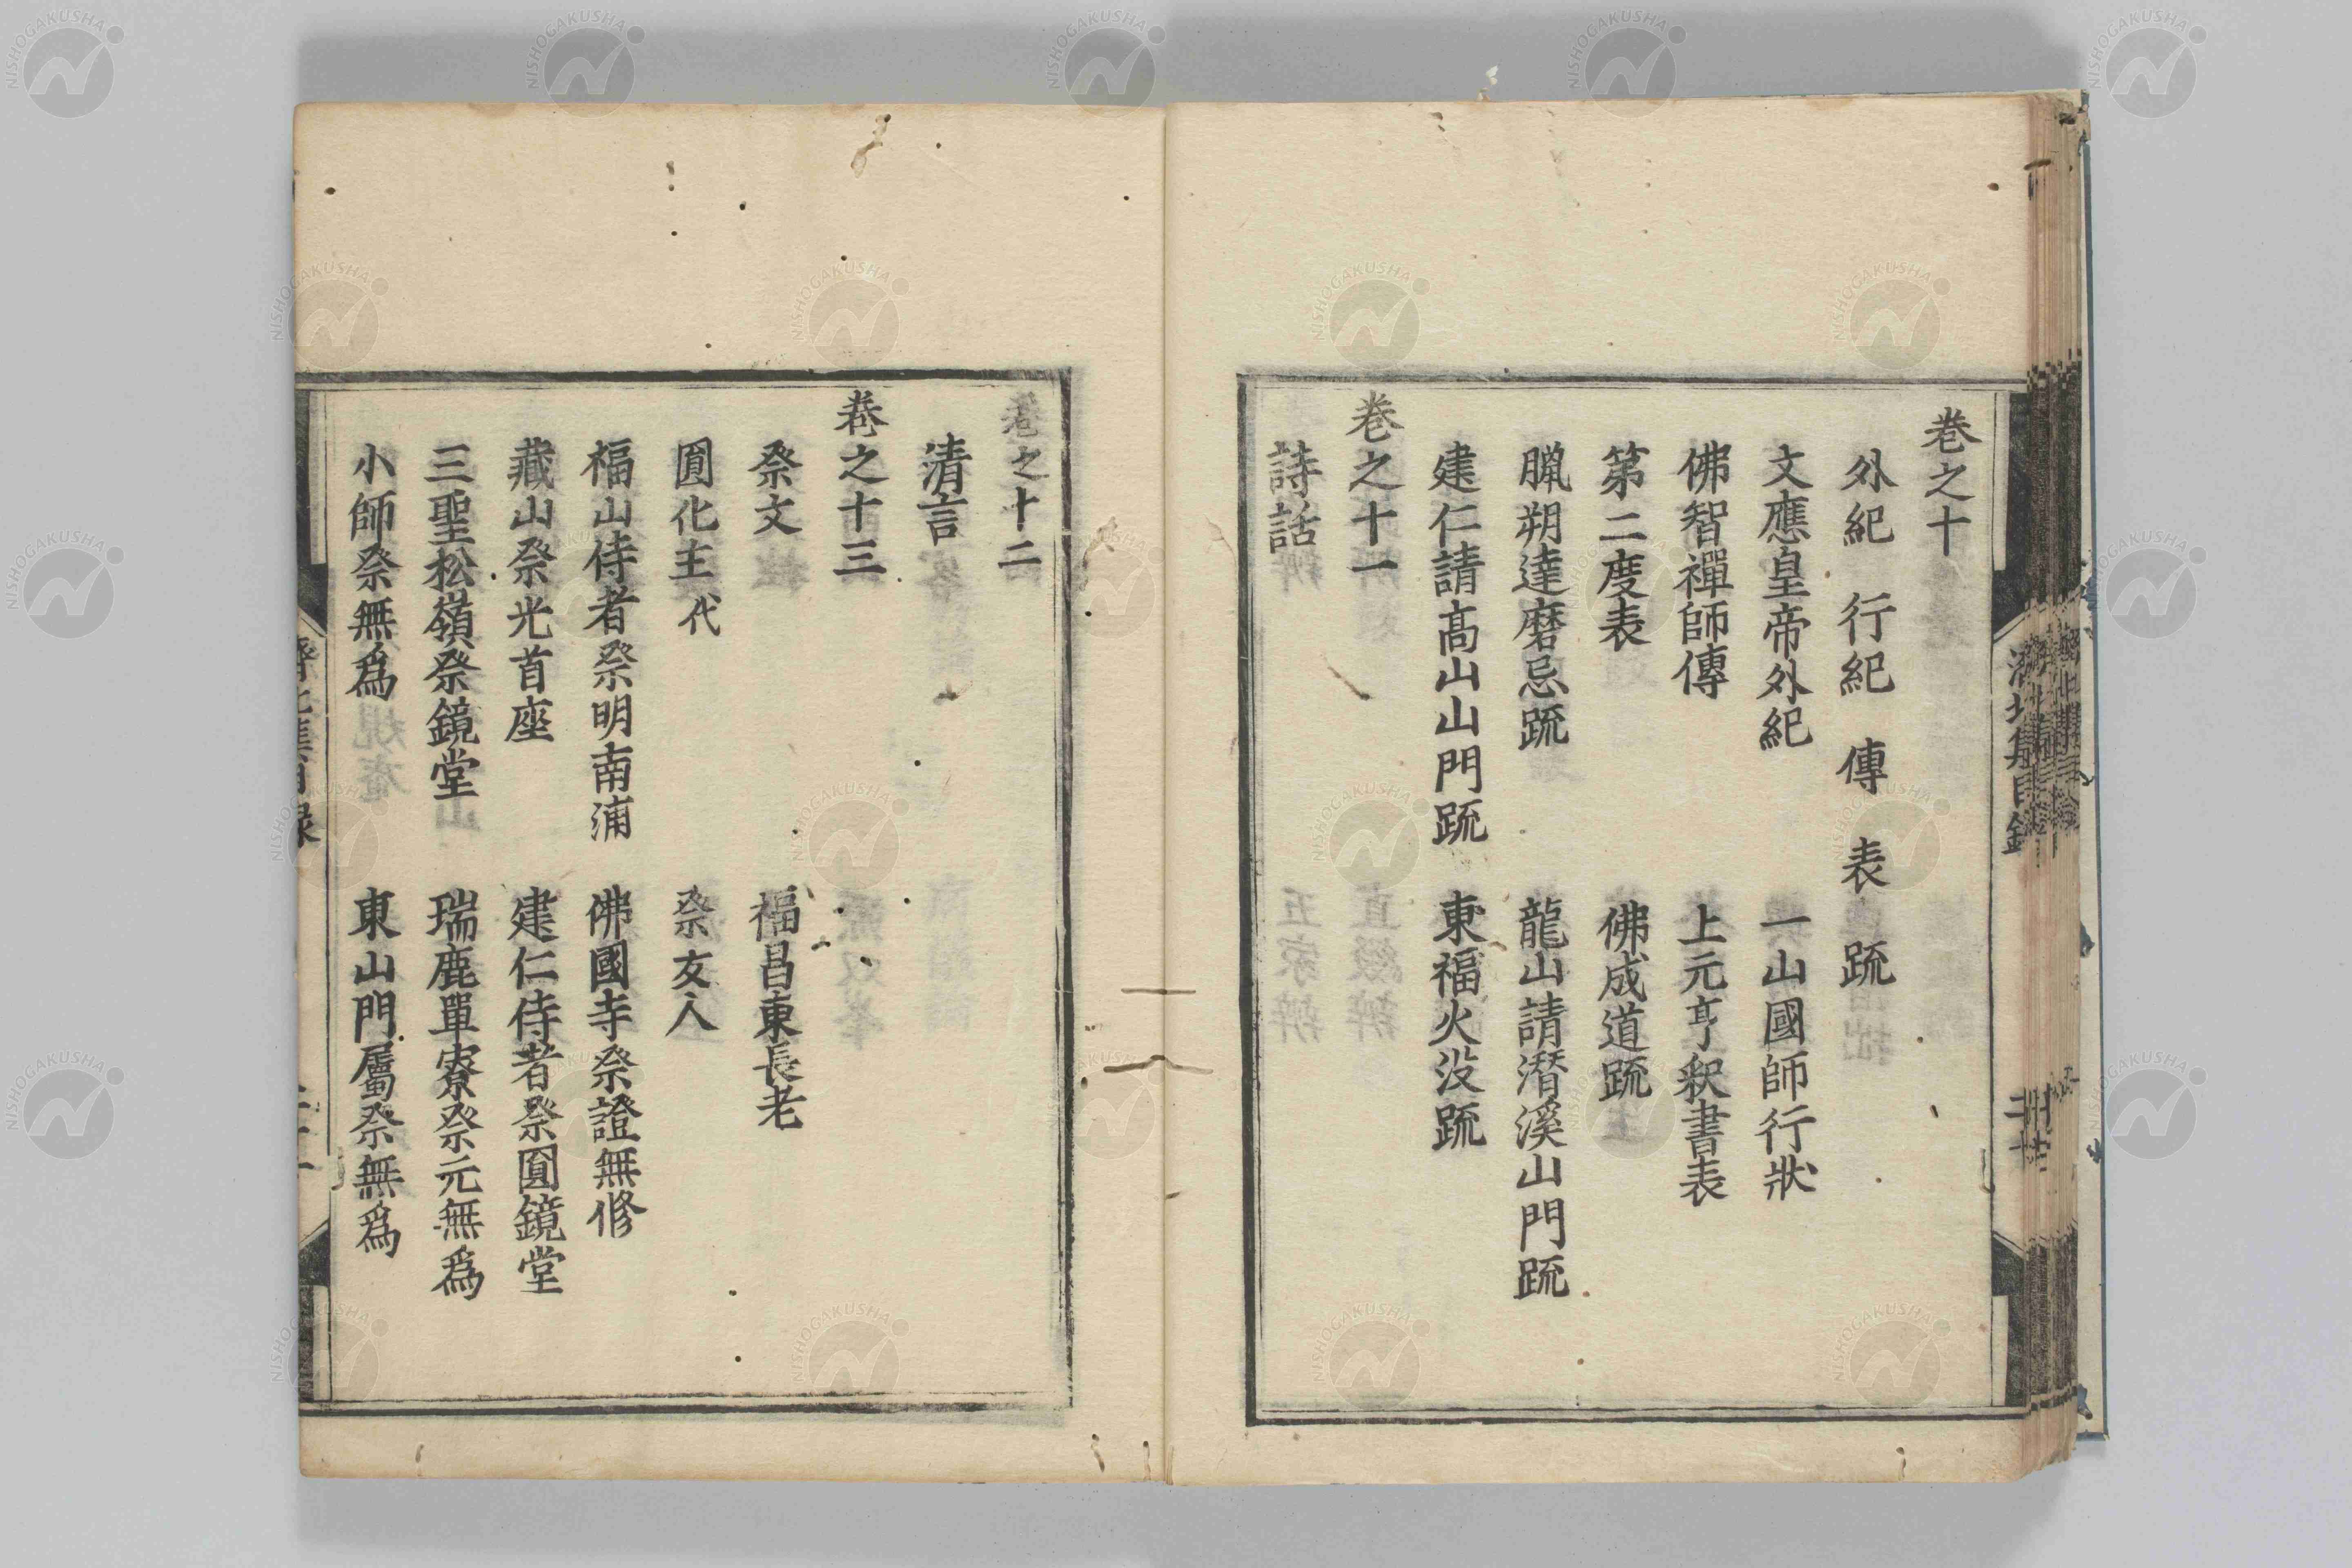 卷之十
外紀　行紀　傳　表　䟽
文應皇帝外紀　一山國師行狀
佛智禪師傳　上元亨釈書表
第二度表　佛成道䟽
臘朔達磨忌䟽　龍山請潛溪山門䟽
建仁請高山山門䟽　東福火沒䟽
卷之十一
詩話
卷之十二
清言
卷之十三
祭文　福昌東長老
圓化主代　祭友人
福山侍者祭明南浦　佛國寺祭證無修
藏山祭光首座　建仁侍者祭圓鏡堂
三聖松嶺祭鏡堂　瑞鹿單寮祭元無爲
小師祭無爲　東山門屬祭無爲
NISHOGAKUSHA